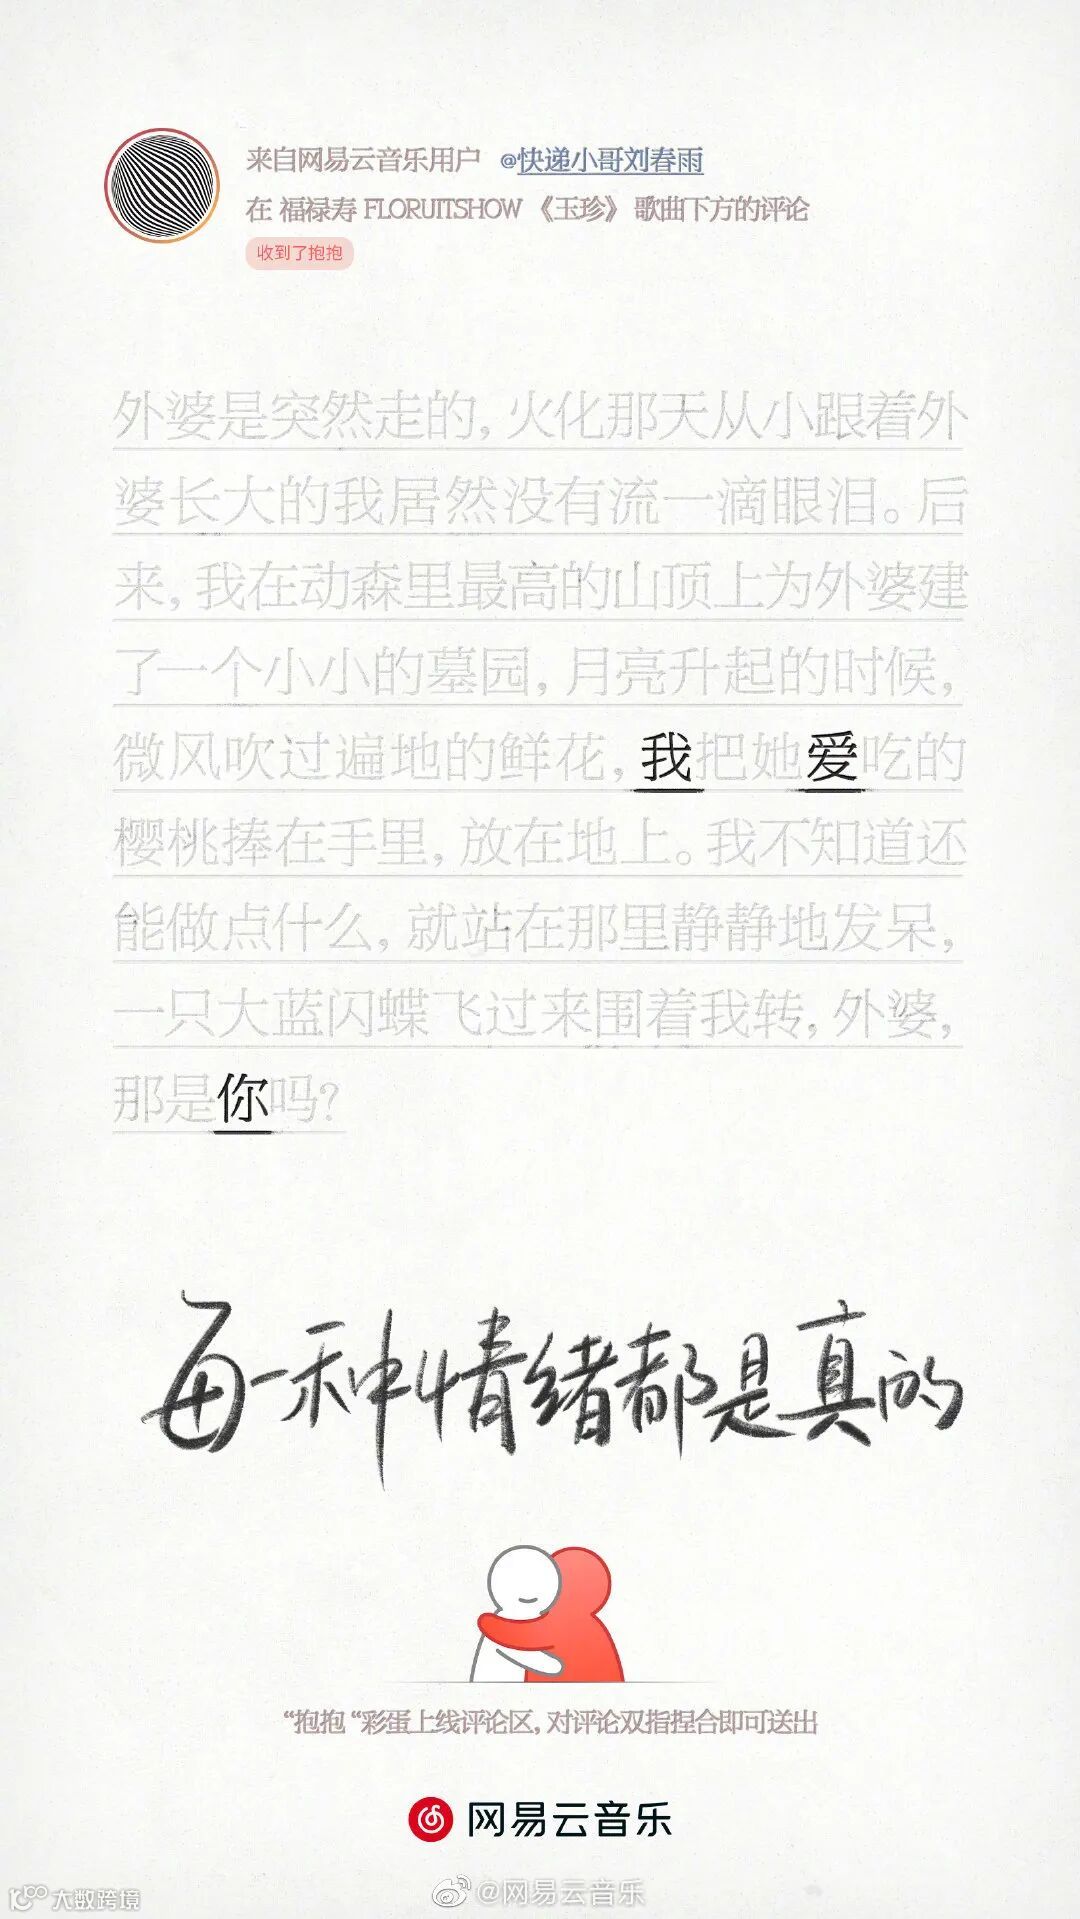 来自网易云音乐用户 @快递小哥刘春雨
在 福禄寿 FLORUITSHOW 《玉珍》 歌曲下方的评论
收到了抱抱
外婆是突然走的, 火化那天从小跟着外
婆长大的我居然没有流一滴眼泪。后
来, 我在动森里最高的山顶上为外婆建
了一个小小的墓园, 月亮升起的时候,
微风吹过遍地的鲜花, 我把她爱吃的
樱桃捧在手里, 放在地上。我不知道还
能做点什么, 就站在那里静静地发呆,
一只大蓝闪蝶飞过来围着我转, 外婆,
那是你吗?
每一种情绪都是真的
“抱抱 “彩蛋上线评论区, 对评论双指捏合即可送出
网易云音乐
@网易云音乐
大数跨境